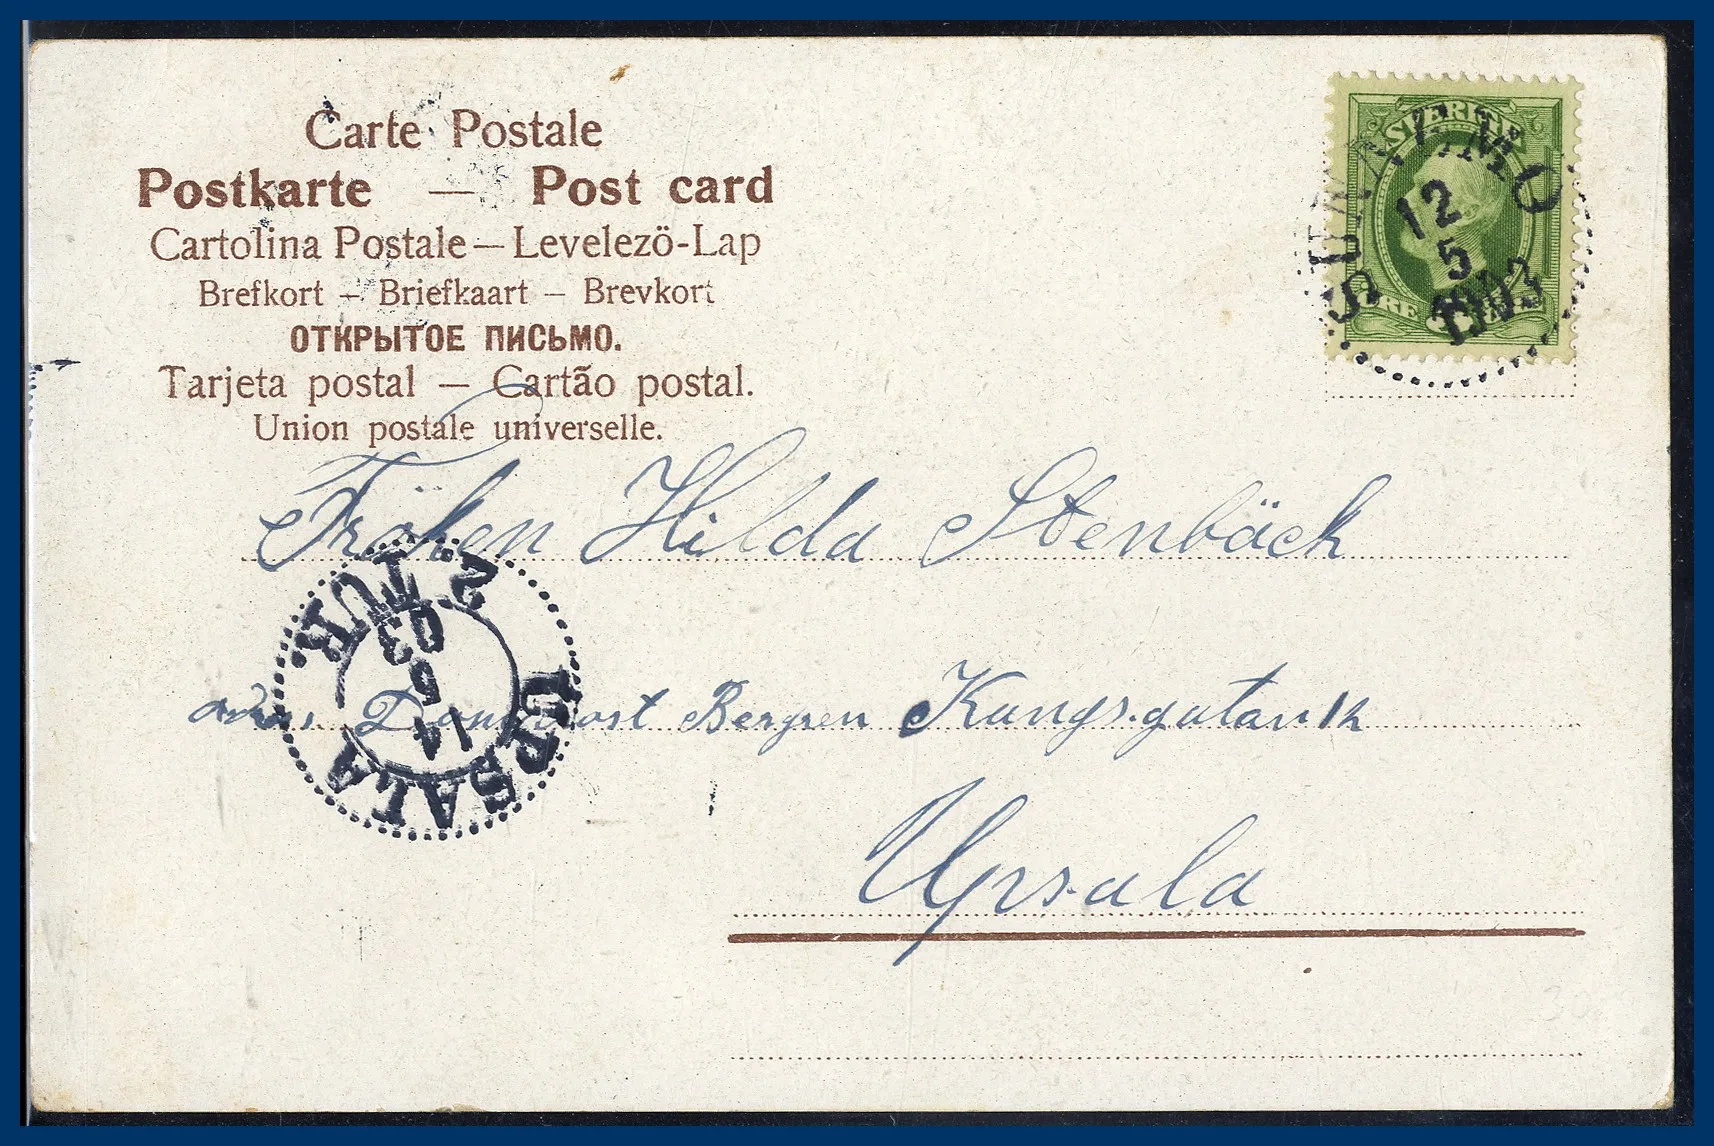 Carte Postale
Postkarte — Post card
Cartolina Postale — Levelező-Lap
Brefkort — Briefkaart — Brevkort
ОТКРЫТОЕ ПИСЬМО.
Tarjeta postal — Cartão postal.
Union postale universelle.
SVERIGE
12
5
1903
Fröken Hilda Stenbäck
2. TUR
03
5
14
UPSALA
Bergren Kungsgatan 12
Upsala